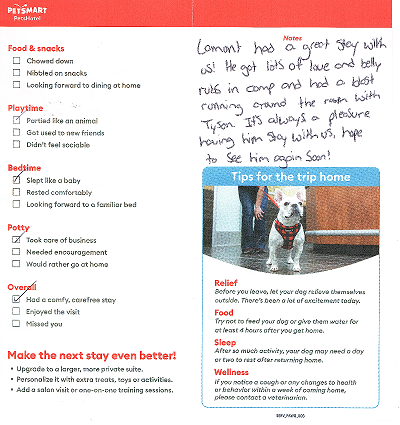 PETSMART
PetsHotel
Food & snacks
Chowed down
Nibbled on snacks
Looking forward to dining at home
Playtime
Partied like an animal
Got used to new friends
Didn't feel sociable
Bedtime
Slept like a baby
Rested comfortably
Looking forward to a familiar bed
Potty
Took care of business
Needed encouragement
Would rather go at home
Overall
Had a comfy, carefree stay
Enjoyed the visit
Missed you
Make the next stay even better!
• Upgrade to a larger, more private suite.
• Personalize it with extra treats, toys or activities.
• Add a salon visit or one-on-one training sessions.
Notes
Lamont had a great stay with
us! He got lots of love and belly
rubs in camp and had a blast
running around the room with
Tyson. It's always a pleasure
having him stay with us, hope
to see him again soon!
Tips for the trip home
Relief
Before you leave, let your dog relieve themselves
outside. There's been a lot of excitement today.
Food
Try not to feed your dog or give them water for
at least 4 hours after you get home.
Sleep
After so much activity, your dog may need a day
or two to rest after returning home.
Wellness
If you notice a cough or any changes to health
or behavior within a week of coming home,
please contact a veterinarian.